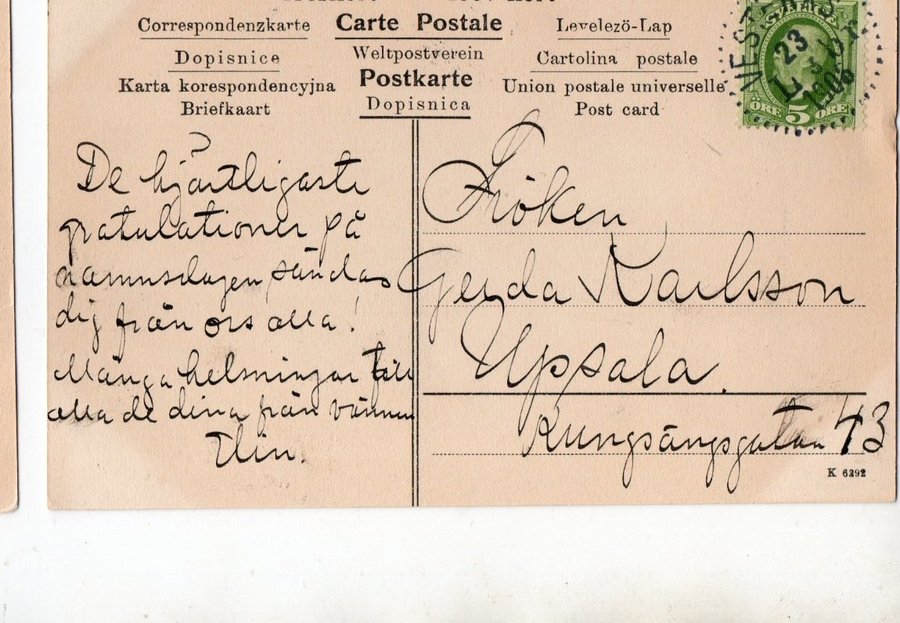 Correspondenzkarte
Carte Postale
Levelezö-Lap
Dopisnice
Weltpostverein
Cartolina postale
Karta korespondencyjna
Postkarte
Union postale universelle
Briefkaart
Dopisnica
Post card
23
3
1906
ÖRE 5 ÖRE
De hjärtligaste
gratulationer på
namnsdagen sändas
dig från oss alla!
Många helsningar till
alla de dina från vännen
Elin.
Fröken
Gerda Karlsson
Upsala.
Kungsängsgatan 43
K 6392